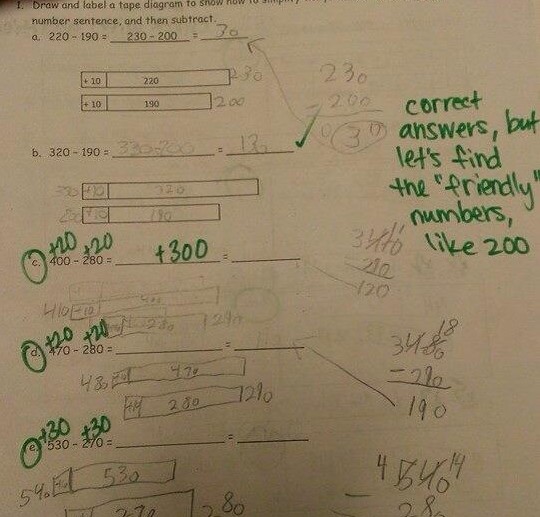 1. Draw and label a tape diagram to show how to simplify
number sentence, and then subtract.
a. 220 - 190 = 230 - 200 = 30
+ 10 220 230
+ 10 190 200
230
- 200
030
correct
answers, but
let's find
the "friendly"
numbers,
like 200
b. 320 - 190 = 330-200 = 130
330 +10 320
200 +10 190
+20 +20 +300
c. 400 - 280 = =
410 +10 400
+10 280 290
290
120
+20 +20
d. 470 - 280 = =
480 +10 470
+10 280 290
18
- 290
190
+30 +30
e. 530 - 270 = =
540 530
270 280
4 540 14
- 280